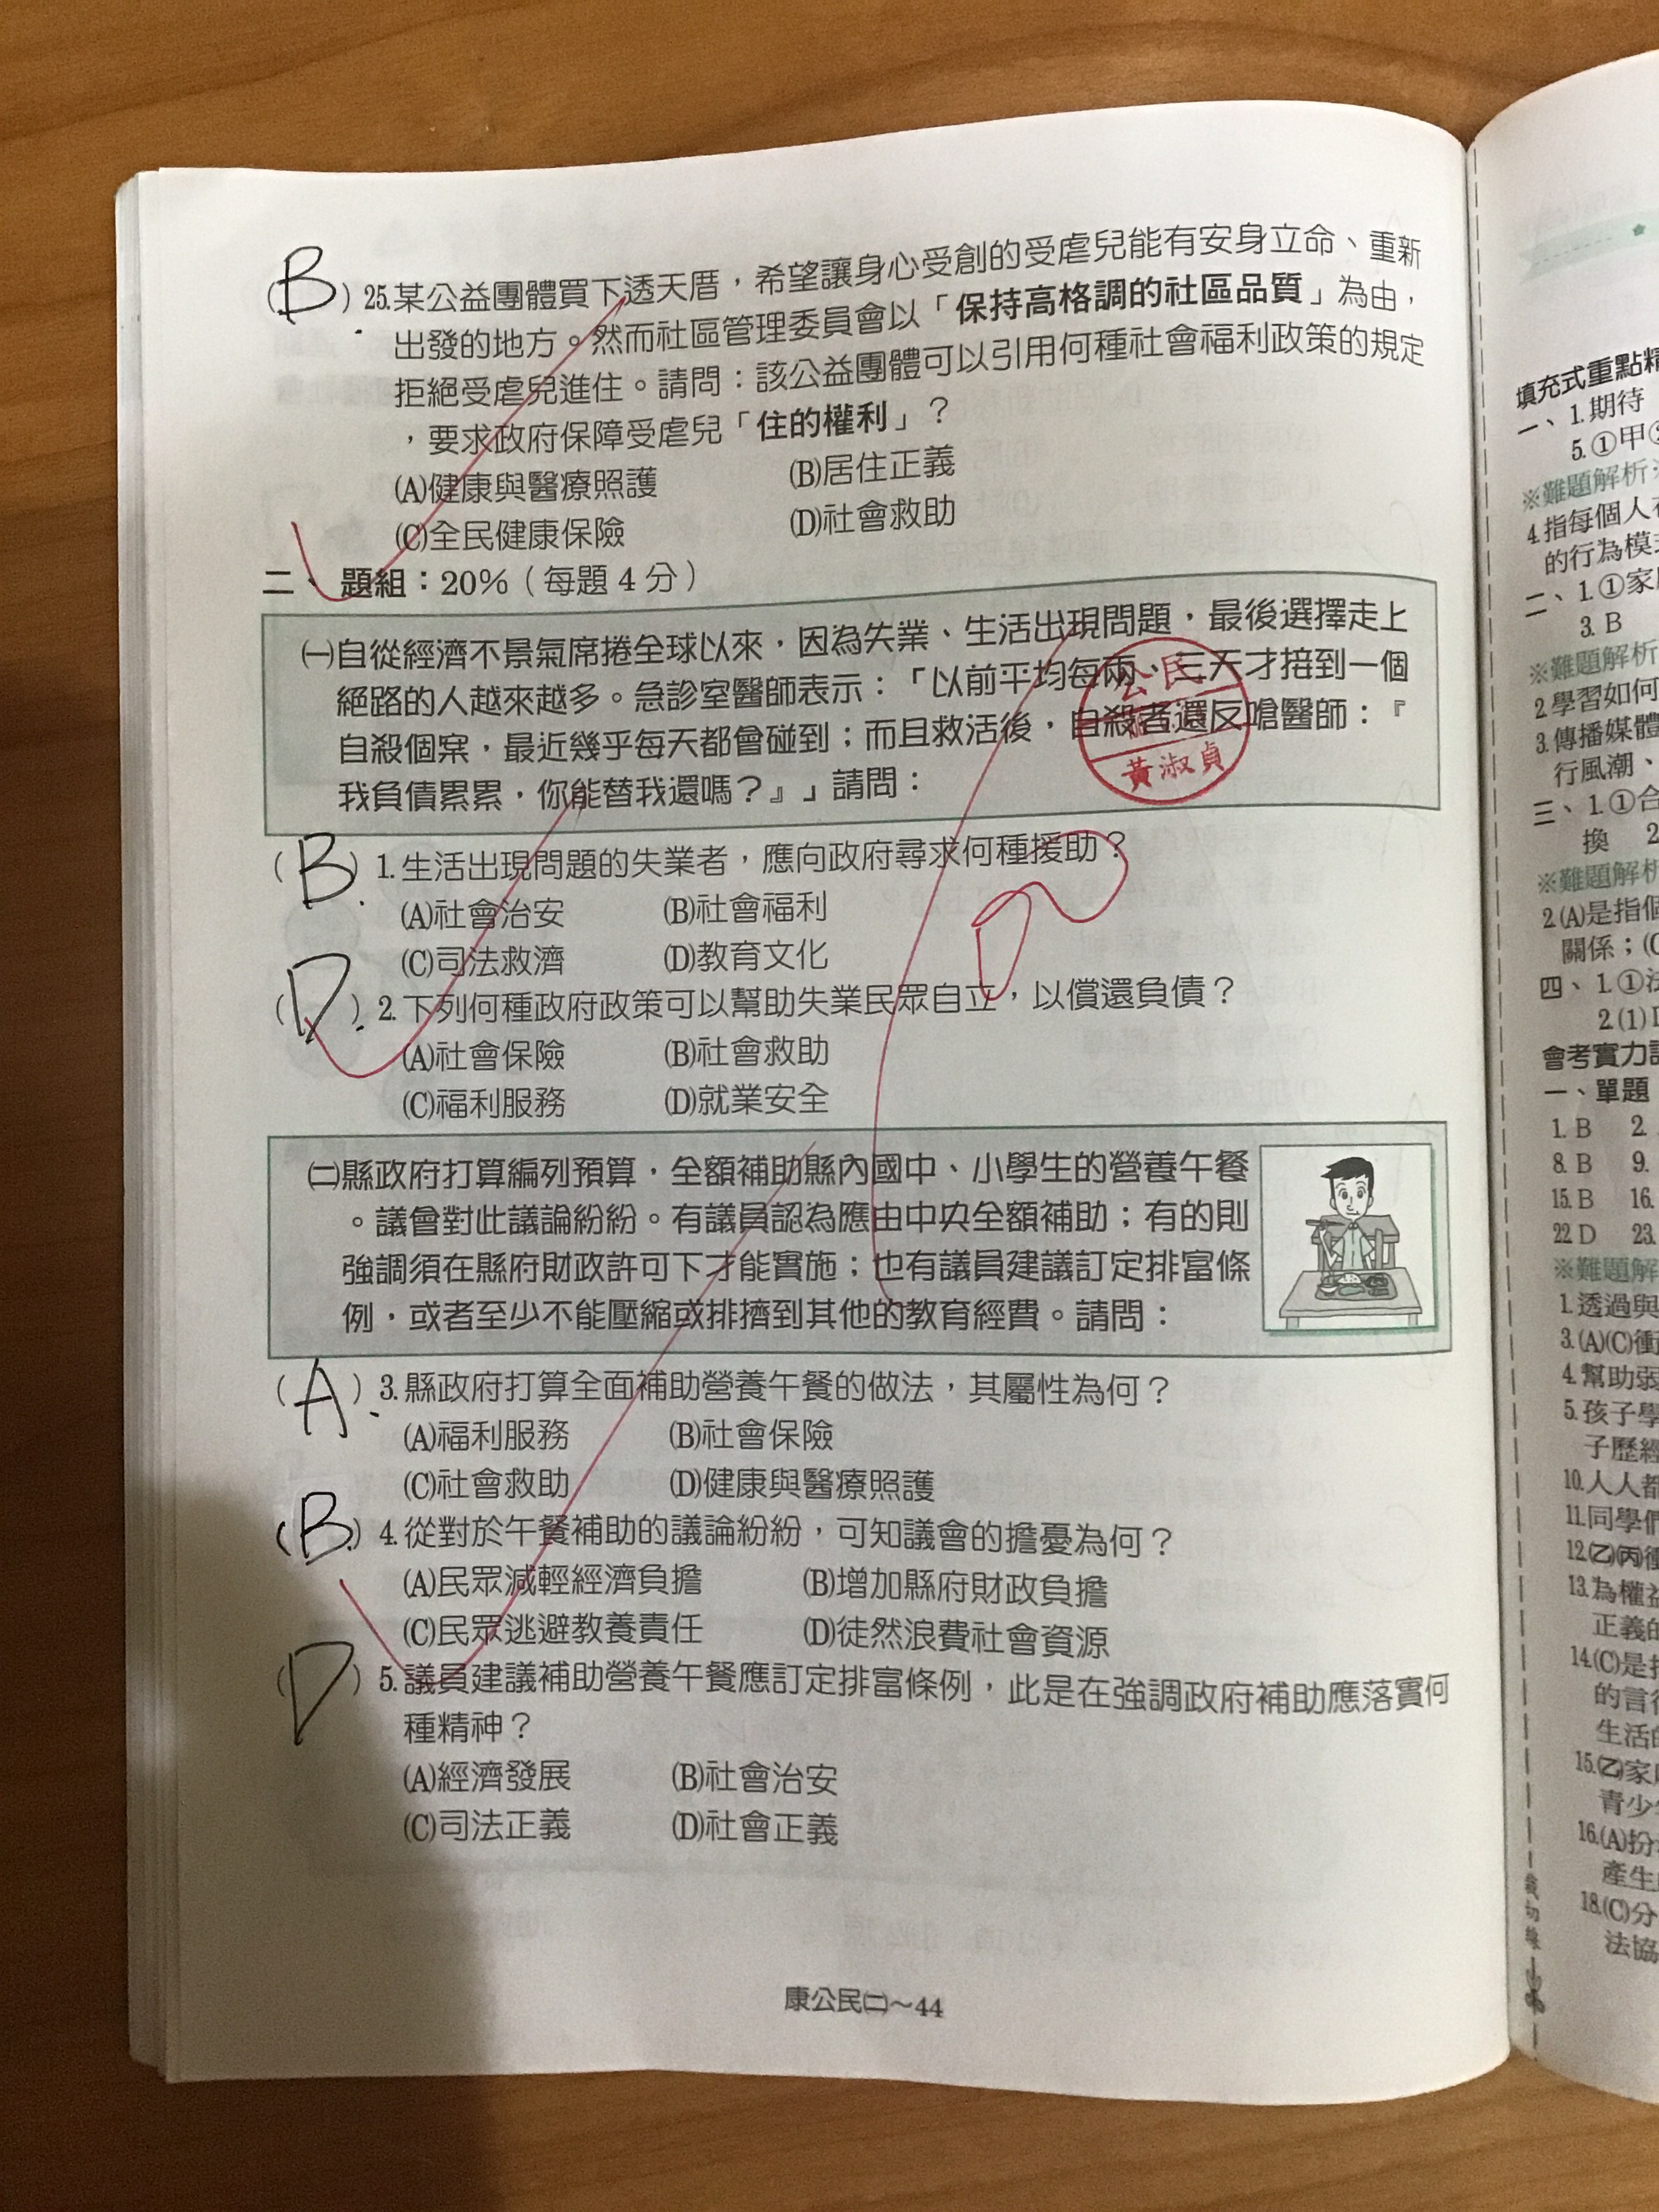 (B)25.某公益團體買下透天厝，希望讓身心受創的受虐兒能有安身立命、重新
出發的地方。然而社區管理委員會以「保持高格調的社區品質」為由，
拒絕受虐兒進住。請問：該公益團體可以引用何種社會福利政策的規定
，要求政府保障受虐兒「住的權利」？
(A)健康與醫療照護 (B)居住正義
(C)全民健康保險 (D)社會救助
二、題組：20%（每題4分）
㈠自從經濟不景氣席捲全球以來，因為失業、生活出現問題，最後選擇走上
絕路的人越來越多。急診室醫師表示：「以前平均每兩、三天才接到一個
自殺個案，最近幾乎每天都會碰到；而且救活後，自殺者還反嗆醫師：『
我負債累累，你能替我還嗎？』」請問：
公民
黃淑貞
(B)1.生活出現問題的失業者，應向政府尋求何種援助？
(A)社會治安 (B)社會福利
(C)司法救濟 (D)教育文化
(D)2.下列何種政府政策可以幫助失業民眾自立，以償還負債？
(A)社會保險 (B)社會救助
(C)福利服務 (D)就業安全
㈡縣政府打算編列預算，全額補助縣內國中、小學生的營養午餐
。議會對此議論紛紛。有議員認為應由中央全額補助；有的則
強調須在縣府財政許可下才能實施；也有議員建議訂定排富條
例，或者至少不能壓縮或排擠到其他的教育經費。請問：
(A)3.縣政府打算全面補助營養午餐的做法，其屬性為何？
(A)福利服務 (B)社會保險
(C)社會救助 (D)健康與醫療照護
(B)4.從對於午餐補助的議論紛紛，可知議會的擔憂為何？
(A)民眾減輕經濟負擔 (B)增加縣府財政負擔
(C)民眾逃避教養責任 (D)徒然浪費社會資源
(D)5.議員建議補助營養午餐應訂定排富條例，此是在強調政府補助應落實何
種精神？
(A)經濟發展 (B)社會治安
(C)司法正義 (D)社會正義
康公民㈡～44
填充式重點
一、1.期待
5.①甲
※難題解析
4.指每個人
的行為模
二、1.①家
3.B
※難題解析
2.學習如何
3.傳播媒體
行風潮、
三、1.①合
換 2
※難題解析
2.(A)是指個
關係；(C
四、1.①法
2.(1)
會考實力
一、單題
1.B 2.
8.B 9.
15.B 16.
22 D 23.
※難題解
1.透過與
3.(A)(C)衝
4.幫助弱
5.孩子學
子歷經
10.人人都
11.同學們
12.(乙)(丙)衝
13.為權益
正義的
14.(C)是指
的言行
生活的
15.(乙)家
青少
16.(A)扮
產生
18.(C)分
法協
裁切線